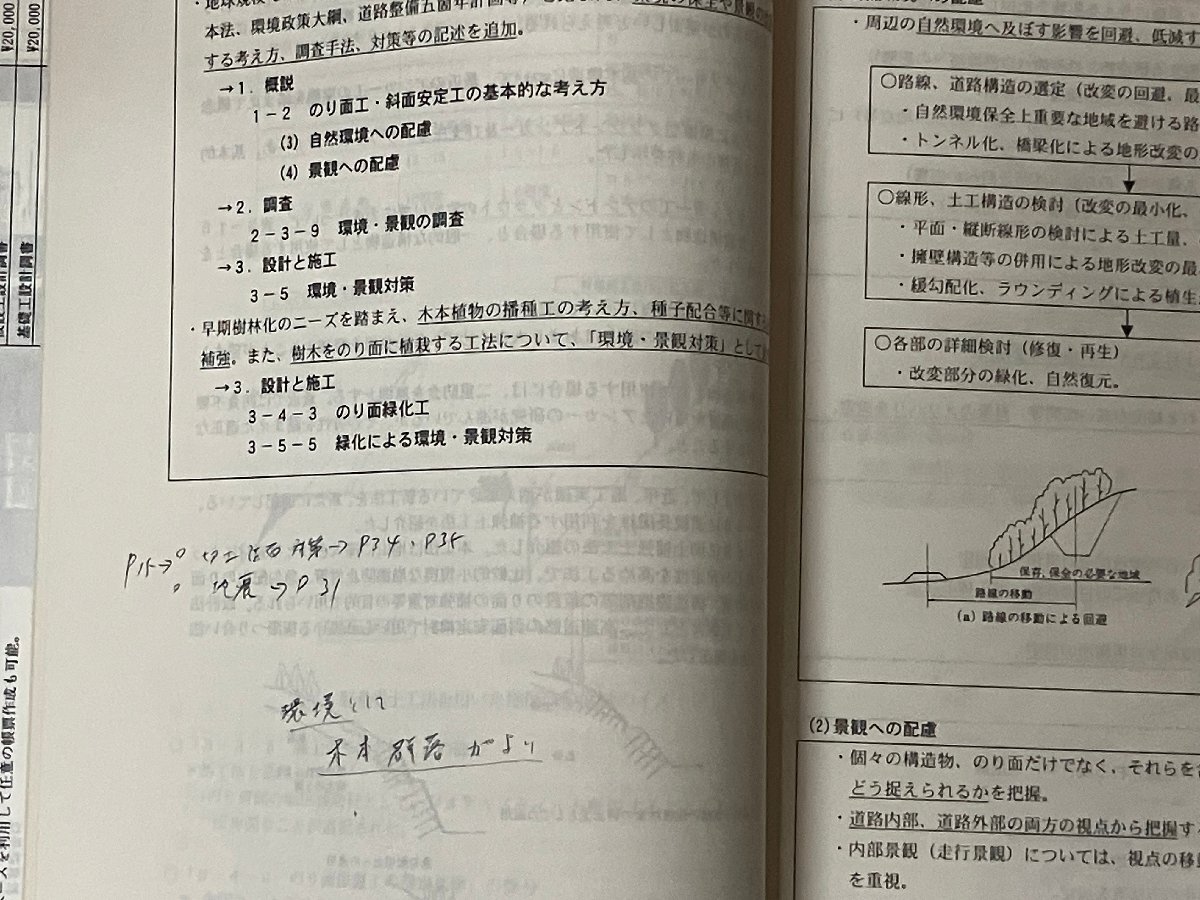 ¥20,000
¥20,000
基礎工設計調書
ズを利用して任意の帳票作成も可能。
本法、環境政策大綱、道路整備五箇年計画等
する考え方、調査手法、対策等の記述を追加。
→1．概説
1－2　のり面工・斜面安定工の基本的な考え方
(3) 自然環境への配慮
(4) 景観への配慮
→2．調査
2－3－9　環境・景観の調査
→3．設計と施工
3－5　環境・景観対策
・早期樹林化のニーズを踏まえ、木本植物の播種工の考え方、種子配合等に関す
補強。また、樹木をのり面に植栽する工法について、「環境・景観対策」として
→3．設計と施工
3－4－3　のり面緑化工
3－5－5　緑化による環境・景観対策
P15→。切土法面対策→P34、P35
。地震→P31
環境として
木本群落がより
・周辺の自然環境へ及ぼす影響を回避、低減す
○路線、道路構造の選定（改変の回避，最
・自然環境保全上重要な地域を避ける路
・トンネル化、橋梁化による地形改変の
○線形、土工構造の検討（改変の最小化、
・平面・縦断線形の検討による土工量、
・擁壁構造等の併用による地形改変の最
・緩勾配化、ラウンディングによる植生
○各部の詳細検討（修復・再生）
・改変部分の緑化、自然復元。
保存、保全の必要な地域
路線の移動
(a) 路線の移動による回避
(2) 景観への配慮
・個々の構造物、のり面だけでなく、それらを含
どう捉えられるかを把握。
・道路内部、道路外部の両方の視点から把握す
・内部景観（走行景観）については、視点の移動
を重視。